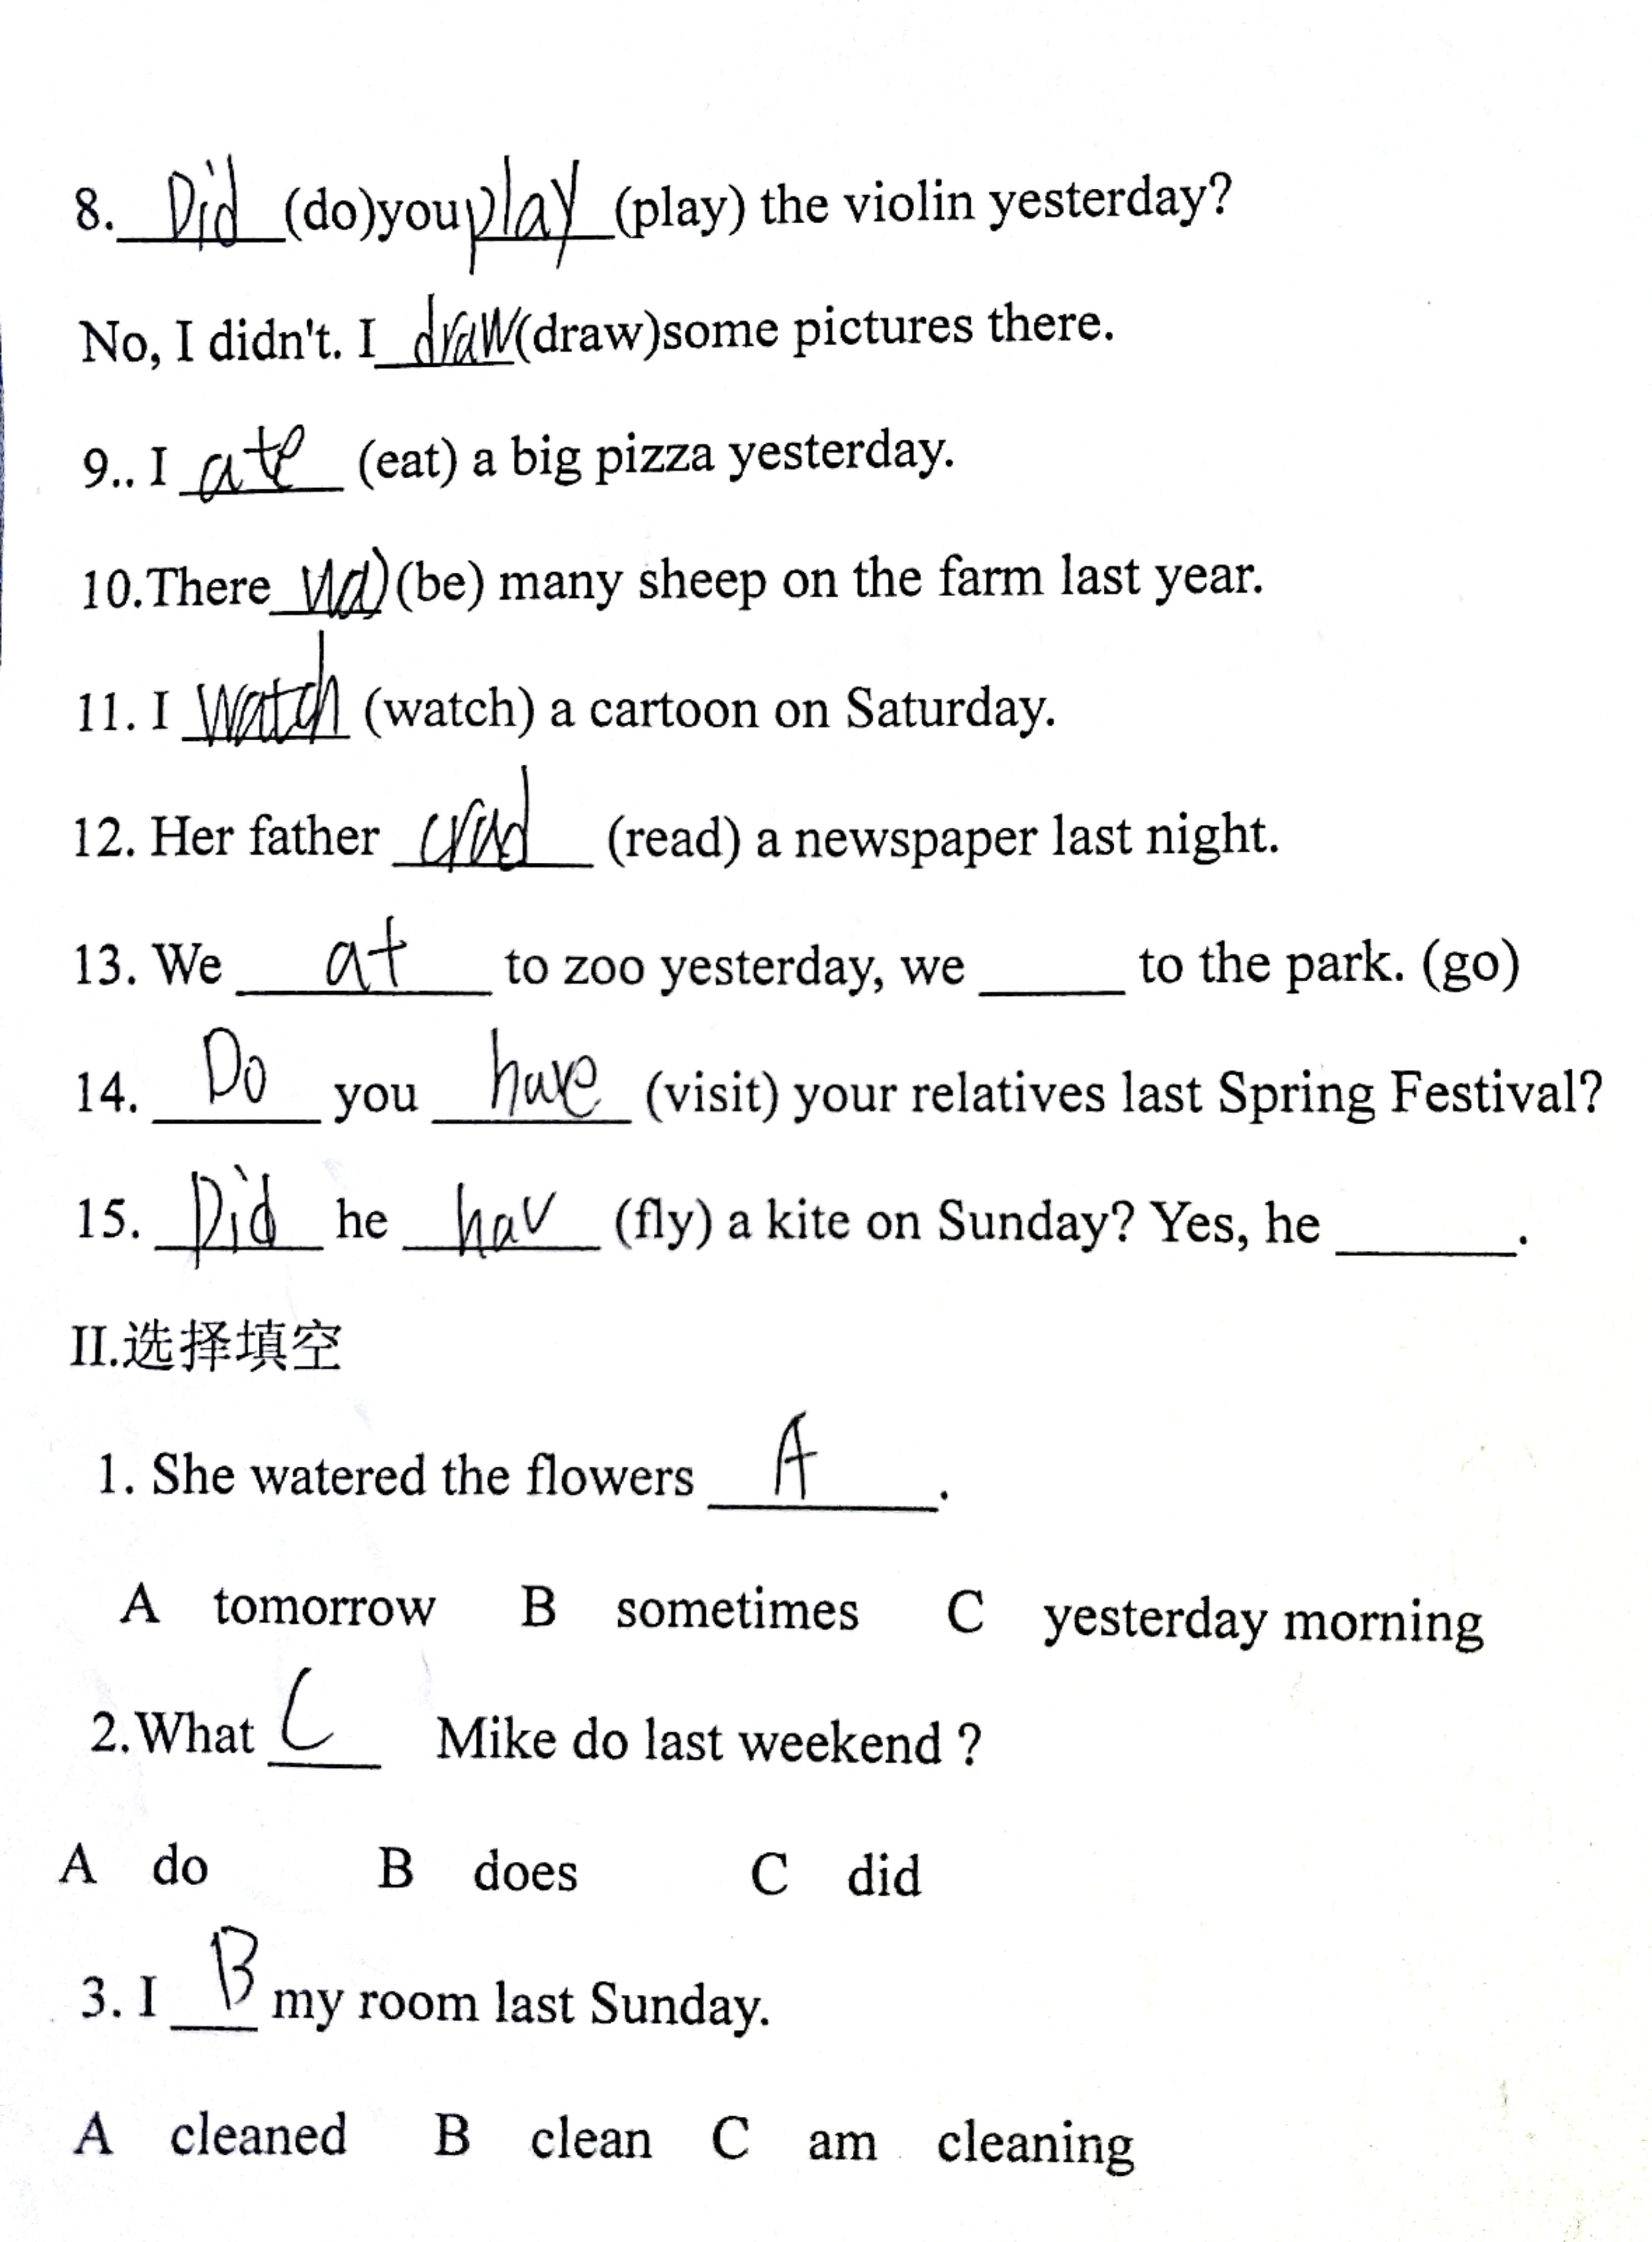 8. Did (do)you play (play) the violin yesterday?
No, I didn't. I draw (draw)some pictures there.
9.. I ate (eat) a big pizza yesterday.
10.There (be) many sheep on the farm last year.
11. I watch (watch) a cartoon on Saturday.
12. Her father (read) a newspaper last night.
13. We at to zoo yesterday, we ______ to the park. (go)
14. Do you have (visit) your relatives last Spring Festival?
15. Did he hav (fly) a kite on Sunday? Yes, he ______.
II.选择填空
1. She watered the flowers A.
A tomorrow B sometimes C yesterday morning
2.What C Mike do last weekend ?
A do B does C did
3. I B my room last Sunday.
A cleaned B clean C am cleaning